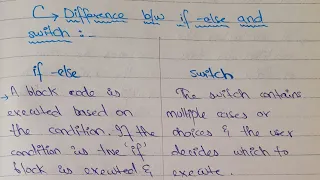 C → Difference b/w if-else and
switch :-
if-else
→ A block code is
executed based on
the condition. If the
condition is true 'if'
block is executed &
switch
The switch contains
multiple cases or
choices & the user
decides which to
execute.